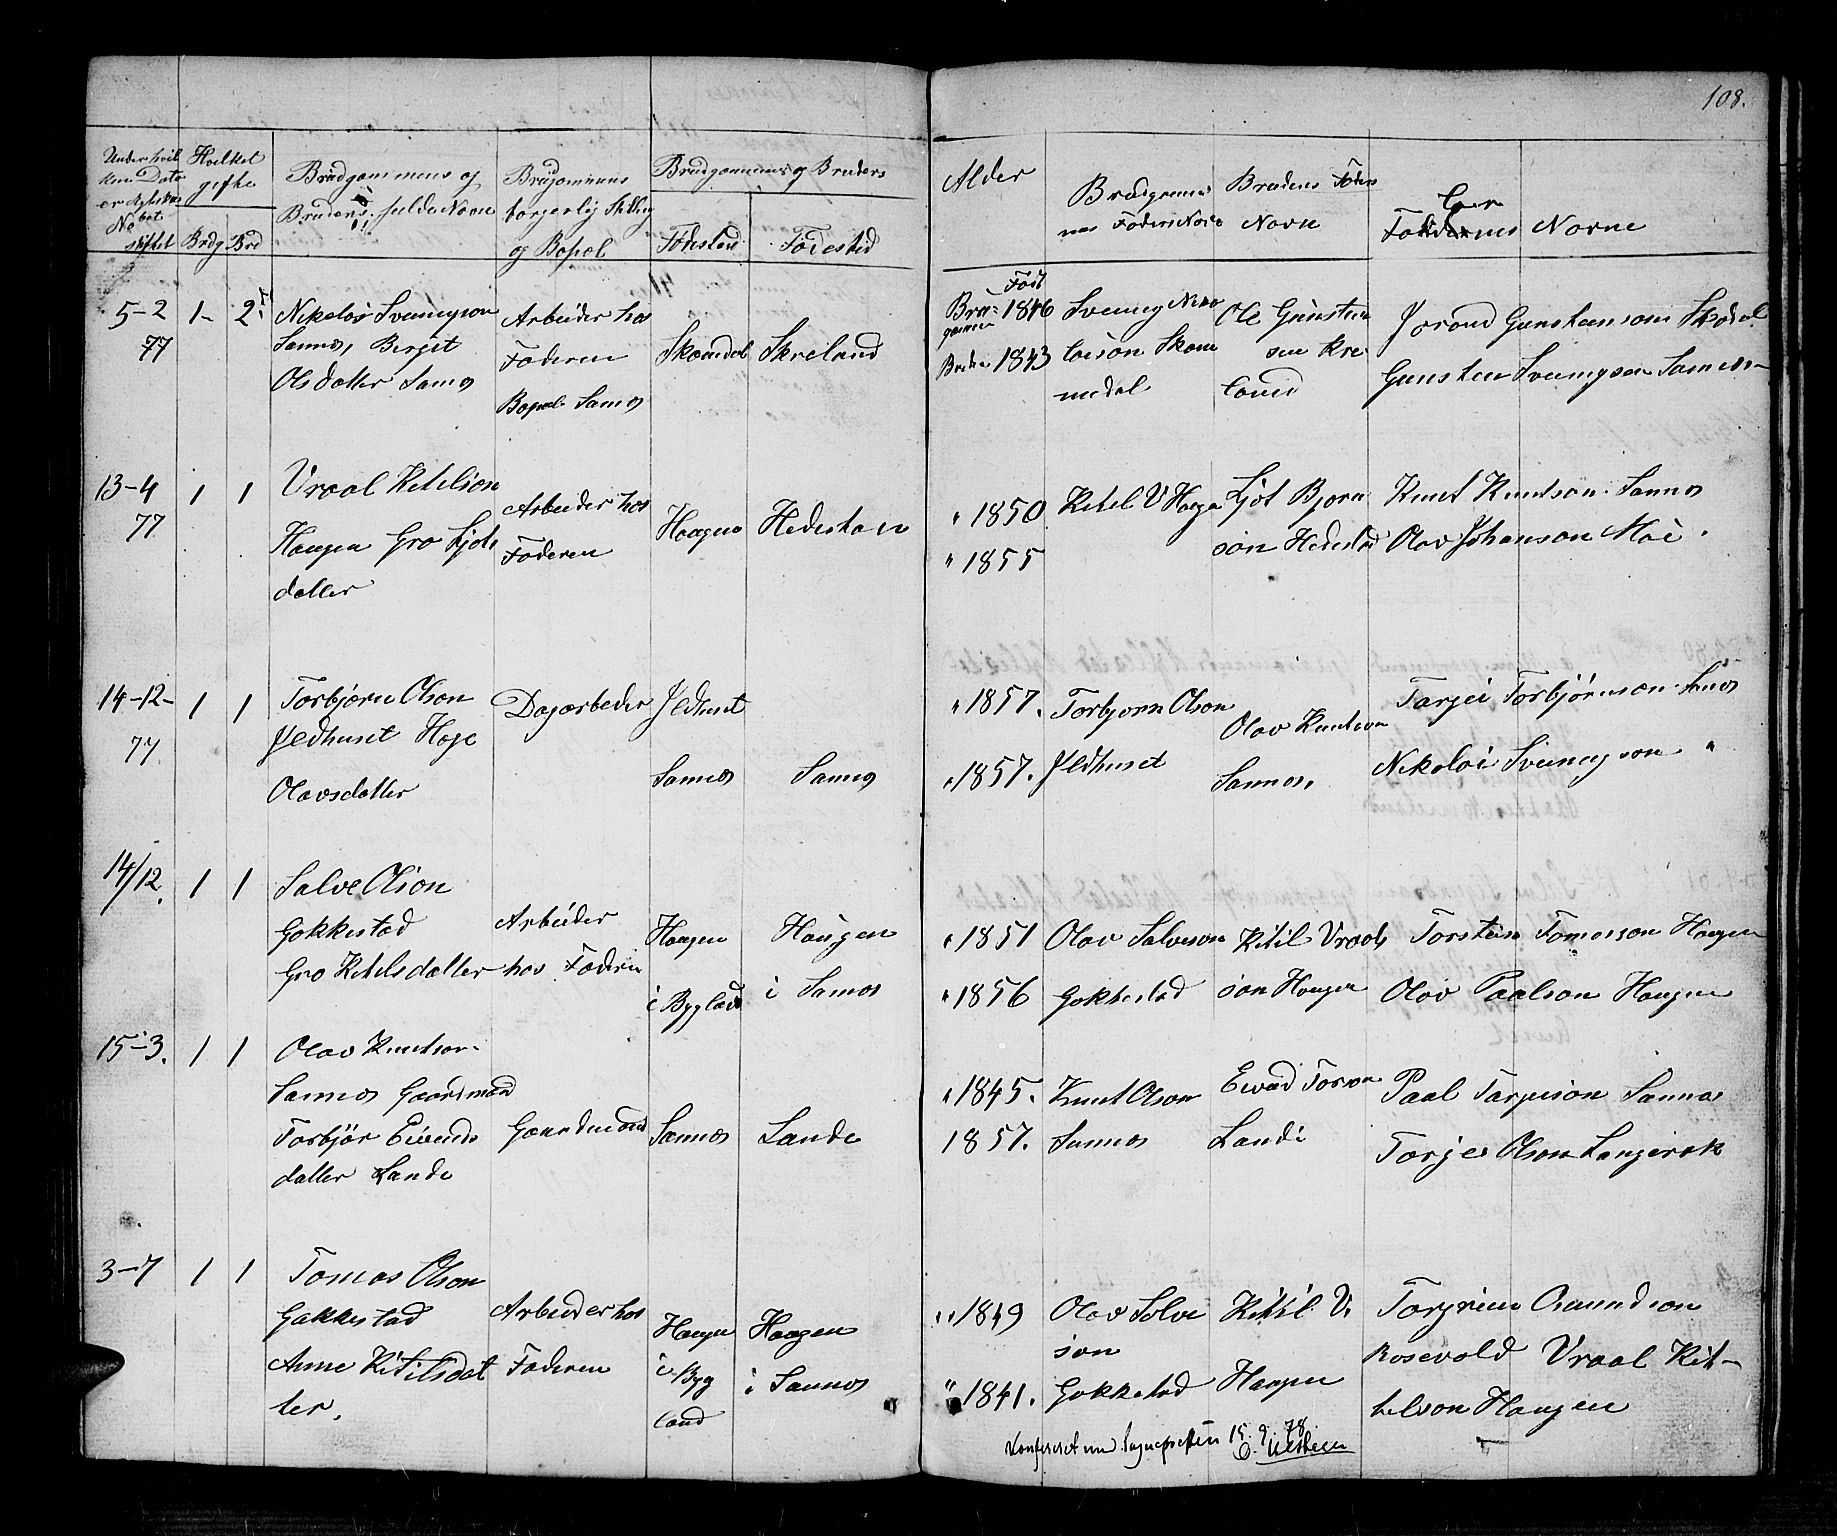 108.
Under hvil Hvilket
ken Dato gifte
Brudgommens og
Brudens fulde Navn
Brudgommens
borgerlig Stilling
og Bopæl
Brudgommens og Brudens
Fødested Fødested
Brdg Brd
Alder
Brudgommens
nes Faders Navn
Brudens Faders
Navn
Navne
5-2 1- 2
77
Nikolai Sveinugson
Sannes Bergit
Olsdatter Sannes
Arbeider hos
Faderen
Bopæl Sannes
Skomedal Skreland
Født
Brudgommen 1846
Bruden 1843
Sveinug Niko
laison Skom
medal
Ole Gunsten
sen Kre
land
Jorand Gunsteinson Skodal
Gunsten Sveinugson Sannes
13-4 1 1
77
Vraal Ketilson
Haugen Gro Ljots
datter
Arbeider hos
Faderen
Haugen Hedestad
" 1850
" 1855
Ketel V Hauge
Ljot Bjorn
son Hedestad
Knut Knutson Sannes
Olav Johanson Moi.
14-12- 1 1
77.
Torbjorn Olson
Ildhuset Hoge
Olavsdatter
Dagarbeder
Ildhuset
Sannes Sannes
" 1857.
" 1857.
Torbjorn Olson
Ildhuset
Olav Knutson
Sannes.
Tarjei Torbjörnson Sannes
Nikolai Sveinugson "
14/12. 1 1
Salve Olson
Gakkestad
Gro Ketelsdatter
Arbeider
hos Faderen
Haugen
i Bygland
Haugen
i Sannes
" 1851
" 1856
Olav Salveson
Gakkestad
Ketil Vraals
son Haugen
Torstein Tomasson Haugen
Olav Paalson Haugen
15-3. 1 1
Olav Knutson
Sannes Gaardmand
Torbjør Eivinds
datter Lande
Gaardmand
Sannes Lande
" 1845.
1857.
Knut Olson
Sannes
Eivind Torson
Landi
Paal Tarjeison Sannes
Torje Olson Langerak
3-7 1 1
Tomas Olson
Gakkestad
Anne Ketilsdat
ter.
Arbeider hos
Faderen
Haugen
i Byg
land
Haugen
i Sannes
" 1849
" 1841.
Olav Solve
son
Gakkestad
Ketil V.
Haugen
Torgrim Aamundson
Rosevold Vraal Ket-
telson Haugen
Konfereret med Sognepresten 15. 9. 78.